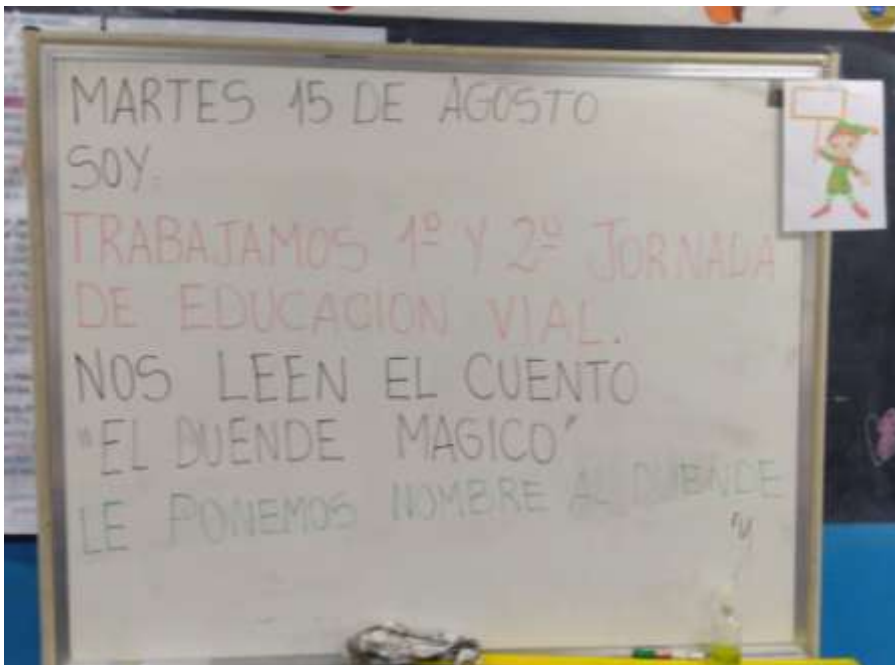 MARTES 15 DE AGOSTO
SOY
TRABAJAMOS 1º Y 2º JORNADA
DE EDUCACION VIAL.
NOS LEEN EL CUENTO
"EL DUENDE MAGICO"
LE PONEMOS NOMBRE AL DUENDE